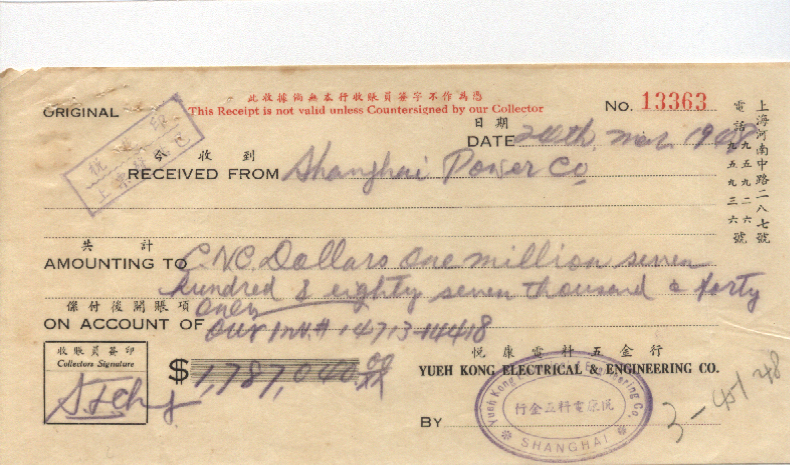 此收據倘無本行收賬員簽字不作為憑
ORIGINAL This Receipt is not valid unless Countersigned by our Collector No. 13363
日期
DATE 24th, Mar. 1948
收到
RECEIVED FROM Shanghai Power Co
共計
AMOUNTING TO C.N.C. Dollars One million seven
hundred & eighty seven thousand & forty
only
係付後開賬項
ON ACCOUNT OF our inv.# 14713-14418
收賬員簽印
Collectors Signature
$1,787,040.00
悅康電料五金行
YUEH KONG ELECTRICAL & ENGINEERING CO.
BY
Yueh Kong Electrical & Engineering Co.
悅康電料五金行
SHANGHAI
上海河南中路二八七號
電話 九五九二六號
九五九三六號